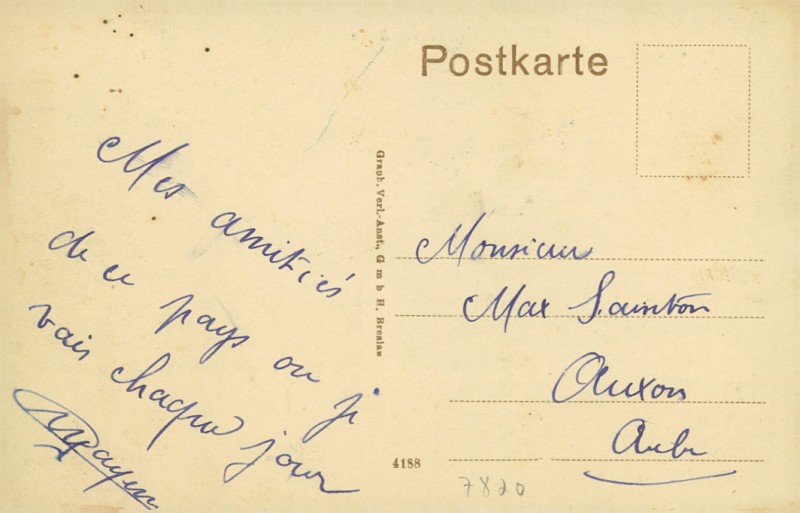 Postkarte
Mes amitiés
de ce pays ou je
vais chaque jour
Graph. Verl.-Anst., G m b H. Breslau
Monsieur
Max Sainton
Auxon
Aube
4188
7820